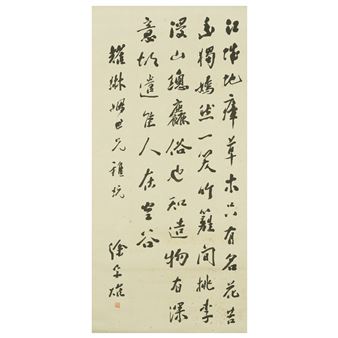 江城地瘴草木只有名花苦
幽獨嫣然一笑竹籬間桃李
漫山總麤俗也知造物有深
意故遣佳人在空谷
耀琳姻世兄雅玩
徐